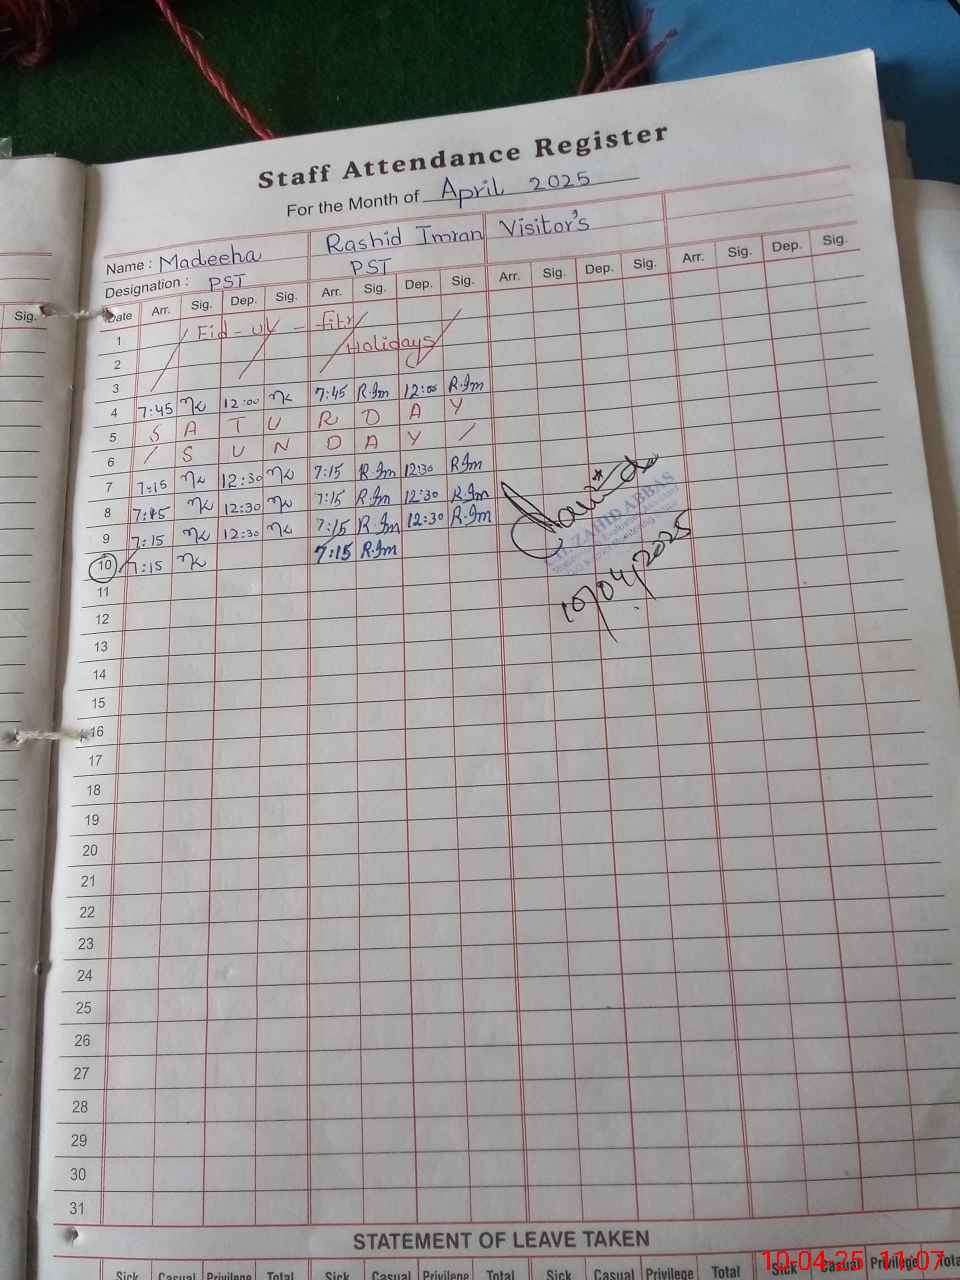 Staff Attendance Register
For the Month of April 2025
Name : Madeeha Rashid Imran Visitor's
Designation : PST PST
Sig. Date Arr. Sig. Dep. Sig. Arr. Sig. Dep. Sig. Arr. Sig. Dep. Sig. Arr. Sig. Dep. Sig.
1 Eid - ul - fitr
2 Holidays
3
4 7:45 12:00 7:45 R.Im 12:00 R.Im
5 S A T U R D A Y
6 S U N D A Y
7 7:15 12:30 7:15 R.Im 12:30 R.Im
8 7:15 12:30 7:15 R.Im 12:30 R.Im
9 7:15 12:30 7:15 R.Im 12:30 R.Im
10 7:15 7:15 R.Im
ZAHID ABBAS
10/04/2025
11
12
13
14
15
16
17
18
19
20
21
22
23
24
25
26
27
28
29
30
31
STATEMENT OF LEAVE TAKEN
Sick Casual Privilege Total Sick Casual Privilege Total Sick Casual Privilege Total Sick Casual Privilege Total
10.04.25 11:07